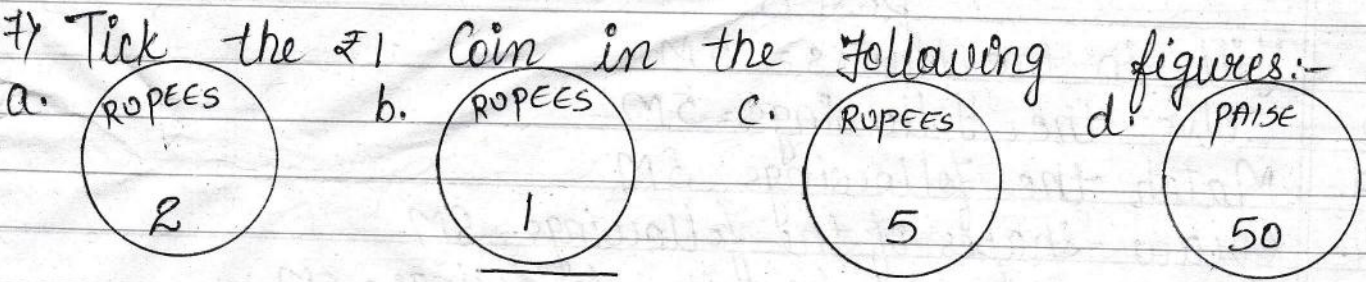 7) Tick the ₹1 Coin in the Following figures:-
a. RUPEES b. RUPEES c. RUPEES d. PAISE
2 1 5 50